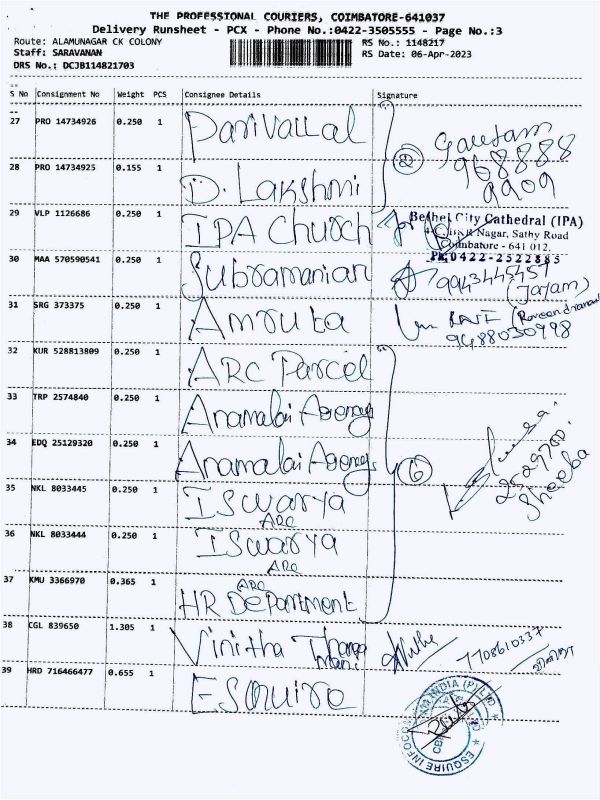 THE PROFESSIONAL COURIERS, COIMBATORE-641037
Delivery Runsheet - PCX - Phone No.:0422-3505555 - Page No.:3
Route: ALAMUNAGAR CK COLONY
RS No.: 1148217
Staff: SARAVANAN
RS Date: 06-Apr-2023
DRS No.: DCJB114821703
S No Consignment No Weight PCS Consignee Details Signature
27 PRO 14734926 0.250 1 Parivallal
Gautam
968888
9909
2
28 PRO 14734925 0.155 1 D. Lakshmi
29 VLP 1126686 0.250 1 IPA Church
Bethel City Cathedral (IPA)
Nagar, Sathy Road
Coimbatore - 641 012.
Ph: 0422-2522885
30 MAA 570590541 0.250 1 Subramanian
9943445457
(Jayam)
31 SRG 373375 0.250 1 Amruta
9488030998
32 KUR 528813809 0.250 1 ARC Parcel
33 TRP 2574840 0.250 1 Anamalai Agency
34 EDQ 25129320 0.250 1 Anamalai Agency
6
Sheeba
35 NKL 8033445 0.250 1 Iswarya
ARC
36 NKL 8033444 0.250 1 Iswarya
ARC
37 KMU 3366970 0.365 1 ARC
HR Department
38 CGL 839650 1.305 1 Vinitha Thanga
Mani
7708610337
39 HRD 716466477 0.655 1 Esquire
ESQUIRE INFOCOM INDIA (P) LTD